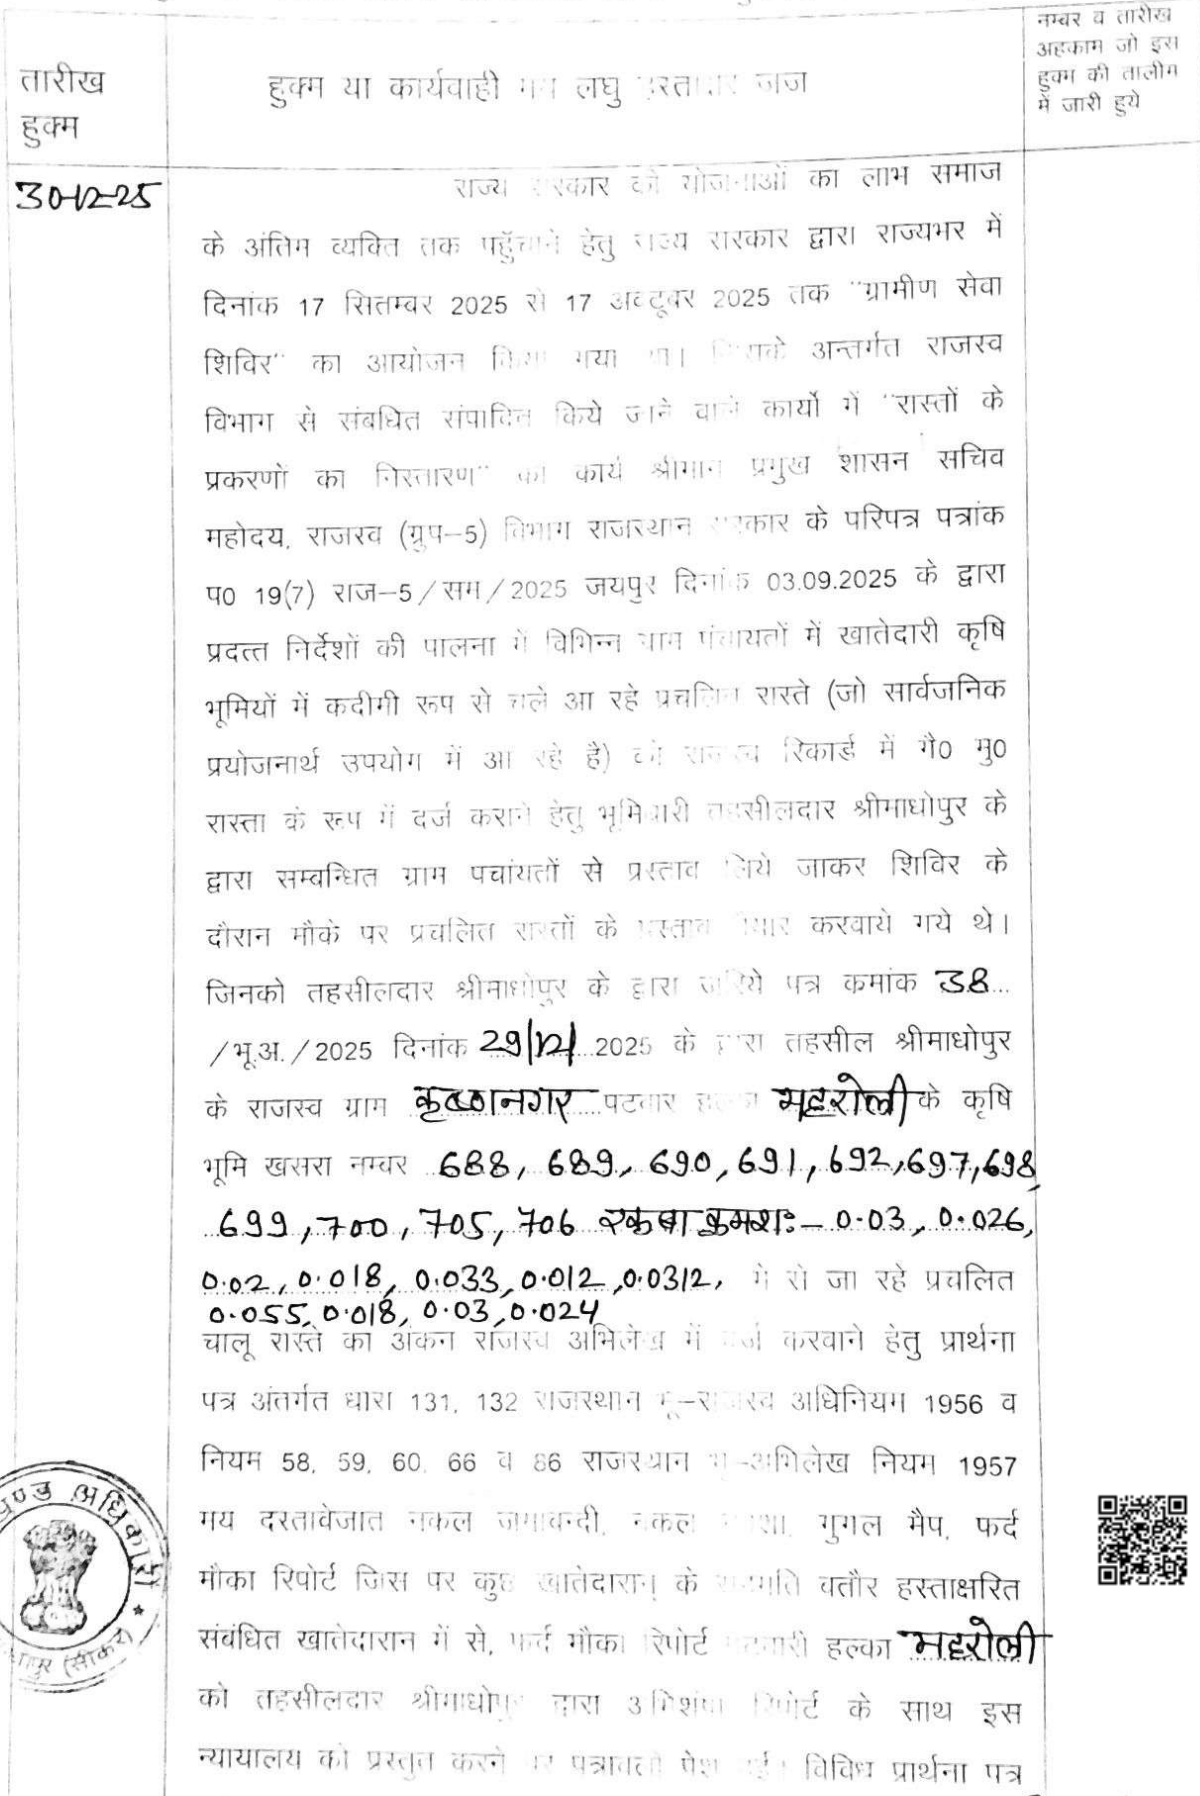 तारीख
हुक्म
हुक्म या कार्यवाही मय लघु हस्ताक्षर जज
नम्बर व तारीख
अहकाम जो इस
हुक्म की तालीम
में जारी हुये
30-12-25
राज्य सरकार की योजनाओं का लाभ समाज
के अंतिम व्यक्ति तक पहुँचाने हेतु राज्य सरकार द्वारा राज्यभर में
दिनांक 17 सितम्बर 2025 से 17 अक्टूबर 2025 तक "ग्रामीण सेवा
शिविर" का आयोजन किया गया था। जिसके अन्तर्गत राजस्व
विभाग से संबधित संपादित किये जाने वाले कार्यो में "रास्तों के
प्रकरणों का निस्तारण" का कार्य श्रीमान प्रमुख शासन सचिव
महोदय, राजस्व (ग्रुप-5) विभाग राजस्थान सरकार के परिपत्र पत्रांक
प0 19(7) राज-5/सम/2025 जयपुर दिनांक 03.09.2025 के द्वारा
प्रदत्त निर्देशों की पालना में विभिन्न ग्राम पंचायतों में खातेदारी कृषि
भूमियों में कदीमी रूप से चले आ रहे प्रचलित रास्ते (जो सार्वजनिक
प्रयोजनार्थ उपयोग में आ रहे है) को राजस्व रिकार्ड में गै0 मु0
रास्ता के रूप में दर्ज कराने हेतु भूमिधारी तहसीलदार श्रीमाधोपुर के
द्वारा सम्बन्धित ग्राम पचांयतों से प्रस्ताव लिये जाकर शिविर के
दौरान मौके पर प्रचलित रास्तों के प्रस्ताव तैयार करवाये गये थे।
जिनको तहसीलदार श्रीमाधोपुर के द्वारा जरिये पत्र कमांक 38...
/भू.अ./2025 दिनांक 29/12/ 2025 के द्वारा तहसील श्रीमाधोपुर
के राजस्व ग्राम कृष्णानगर पटवार हल्का महरोली के कृषि
भूमि खसरा नम्बर 688, 689, 690, 691, 692, 697, 698,
699, 700, 705, 706 रकबा क्रमशः- 0.03, 0.026,
0.02, 0.018, 0.033, 0.012, 0.0312, में से जा रहे प्रचलित
0.055, 0.018, 0.03, 0.024
चालू रास्ते का अंकन राजस्व अभिलेख में दर्ज करवाने हेतु प्रार्थना
पत्र अंतर्गत धारा 131, 132 राजस्थान भू-राजस्व अधिनियम 1956 व
नियम 58, 59, 60, 66 व 86 राजस्थान भू-अभिलेख नियम 1957
मय दस्तावेजात नकल जमाबन्दी, नकल नक्शा, गुगल मैप, फर्द
मौका रिपोर्ट जिस पर कुछ खातेदारान् के सहमति बतौर हस्ताक्षरित
संबंधित खातेदारान में से, फर्द मौका रिपोर्ट पटवारी हल्का महरोली
को तहसीलदार श्रीमाधोपुर द्वारा अभिशंषा रिपोर्ट के साथ इस
न्यायालय को प्रस्तुत करने पर पत्रावली पेश हुई। विविध प्रार्थना पत्र
खण्ड अधिकारी
धोपुर (सीकर)